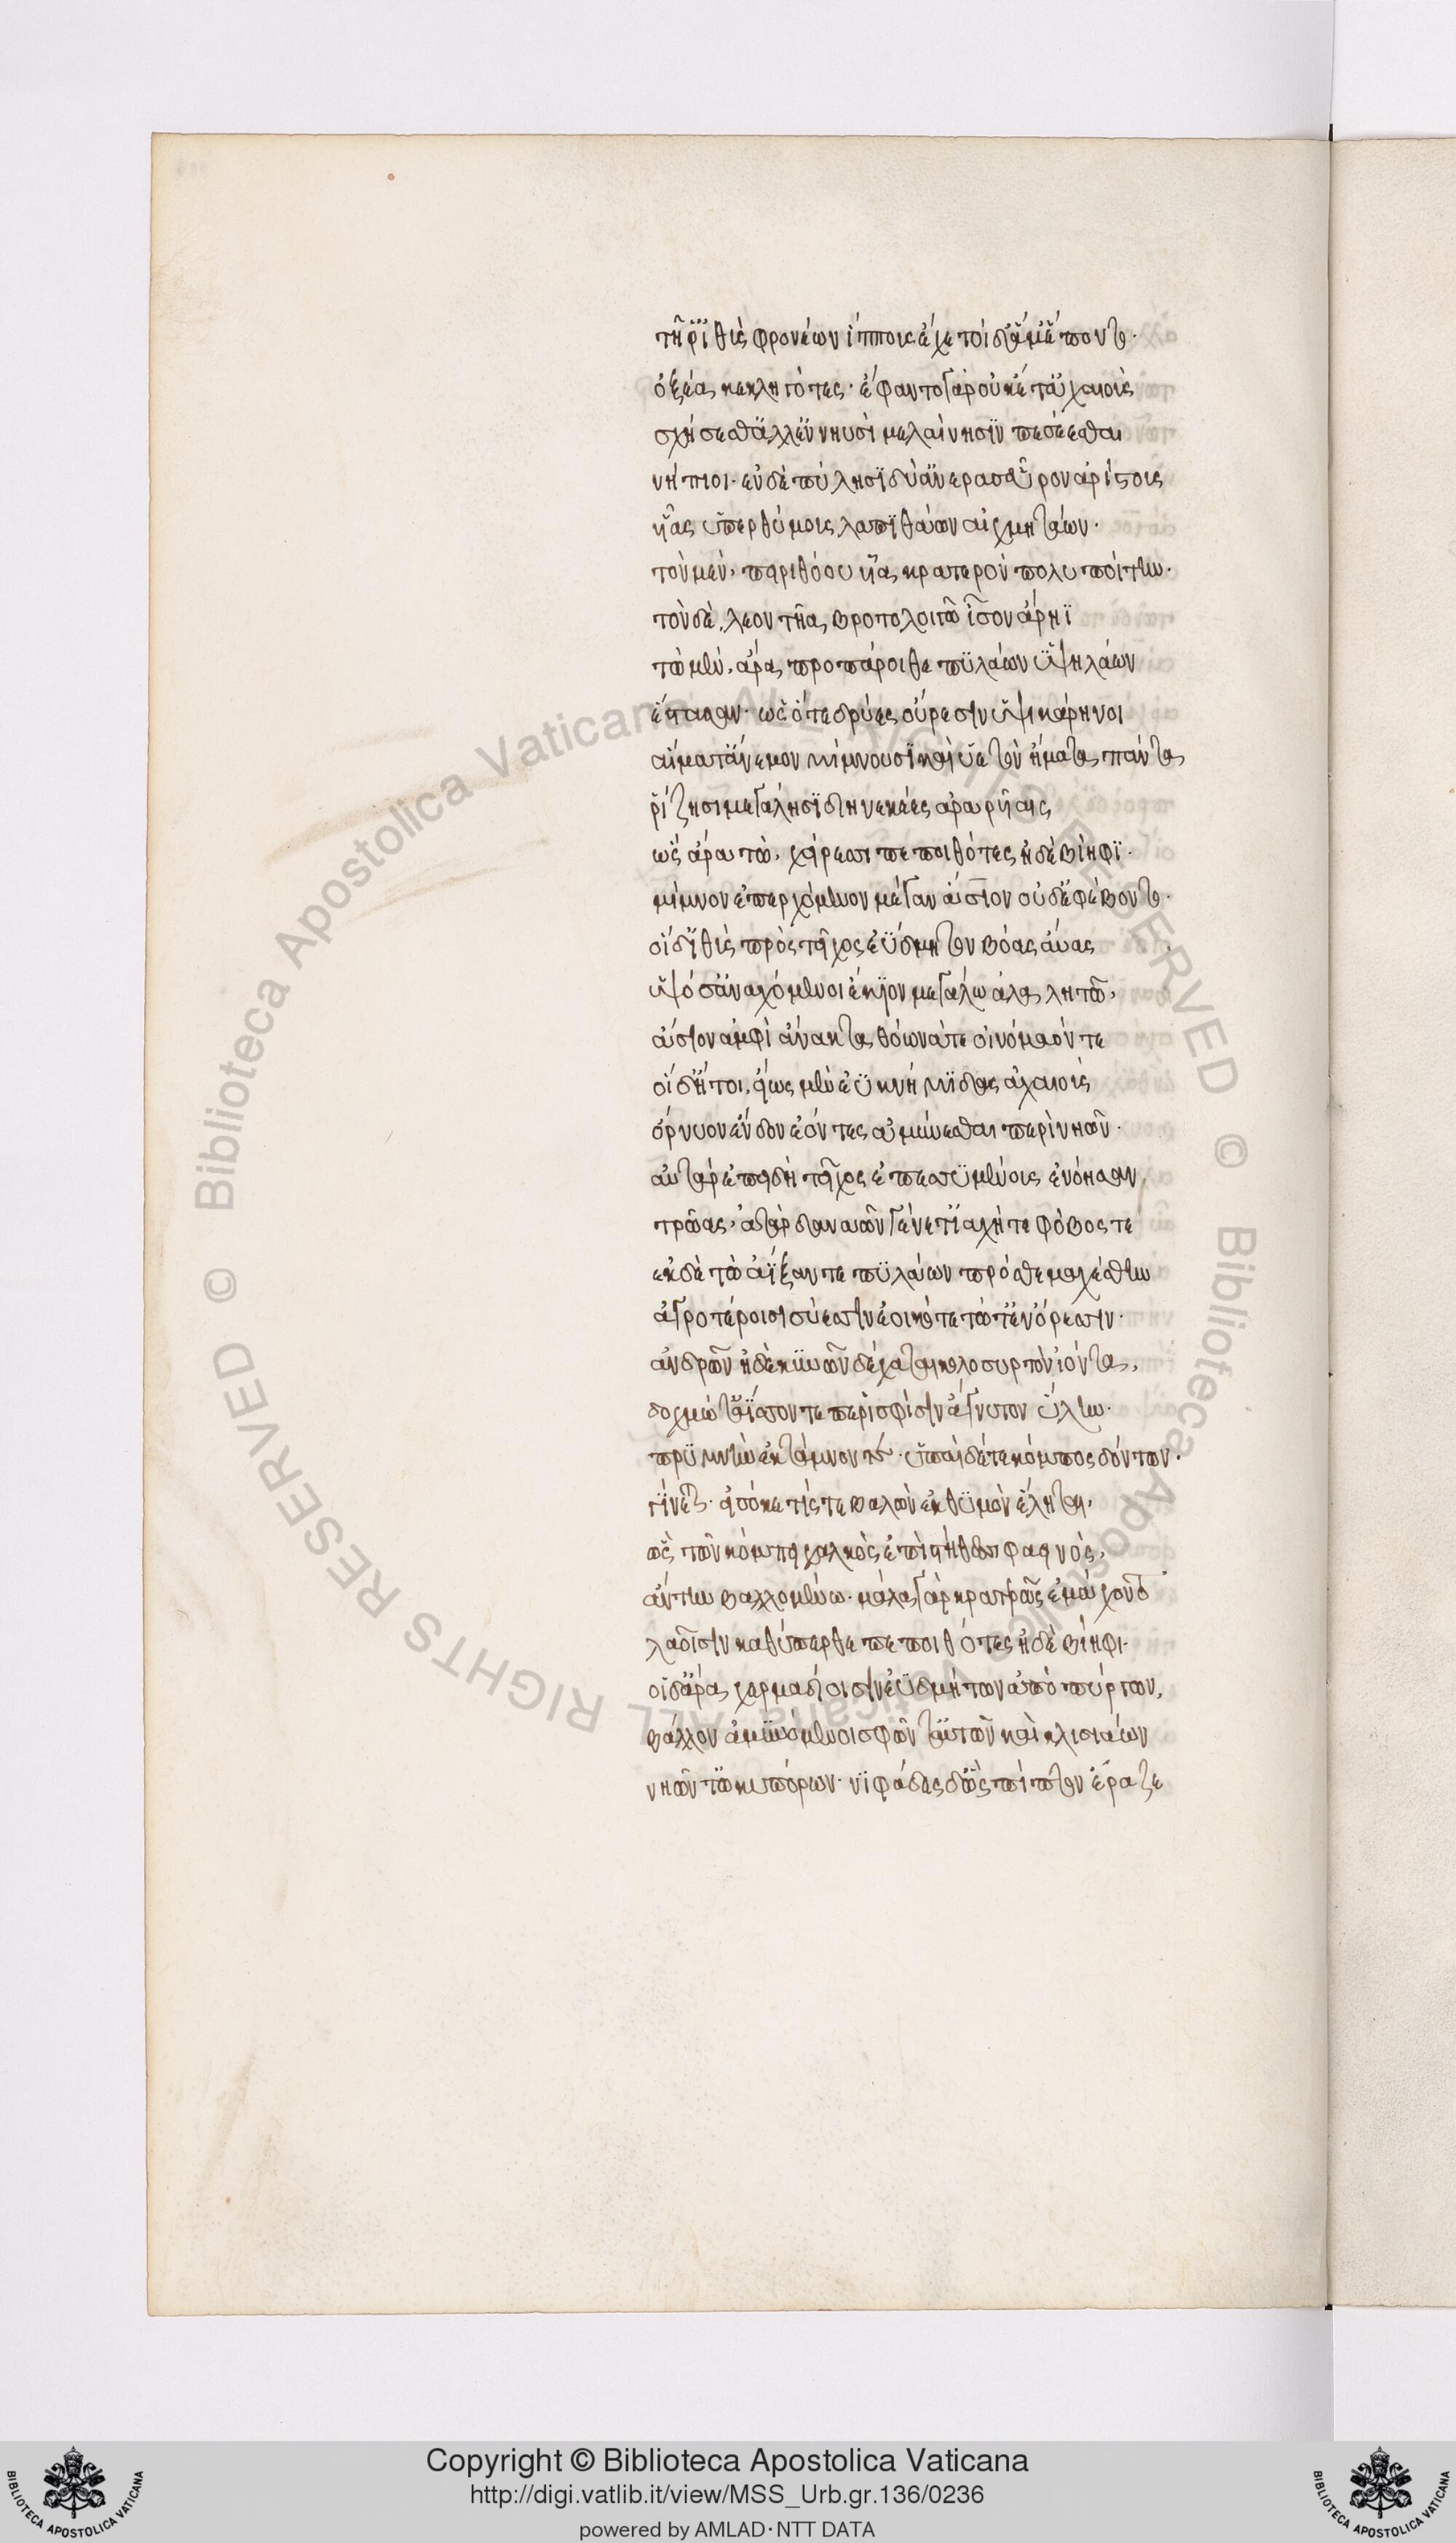 τῆ ῥ' ἰθὺς φρονέων ἵππους ἔχε τοὶ δ' ἅμ' ἕποντο·
ὀξέα κεκληγότες· ἔφαντο γὰρ οὐκέτ' ἀχαιοὺς
σχήσεσθ' ἀλλ' ἐν νηυσὶ μελαίνησιν πεσέεσθαι
νήπιοι· ἐν δὲ πύλησι δύ' ἀνέρας εὗρον ἀρίστους
υἷας ὑπερθύμους λαπιθάων αἰχμητάων·
τὸν μὲν, πειριθόου υἷα, κρατερὸν πολυποίτην·
τὸν δὲ, λεοντῆα, βροτολοιγῶ ἶσον ἄρηϊ
τὼ μὲν, ἄρα, προπάροιθε πυλάων ὑψηλάων
ἕστασαν· ὡς ὅτε δρύες οὔρεσιν ὑψικάρηνοι
αἵ τ' ἄνεμον μίμνουσι καὶ ὑετὸν ἤματα πάντα
ῥίζησι μεγάλησι διηνεκέεσσ' ἀραρυῖαις
ὡς ἄρα τὼ, χείρεσσι πεποιθότες ἠδὲ βίηφι·
μίμνον ἐπερχόμενον μέγαν ἄσιον οὐδὲ φέβοντο·
οἱ δ' ἰθὺς πρὸς τεῖχος ἐΰδμητον βόας αὔας
ὑψόσ' ἀνασχόμενοι ἔκιον μεγάλω ἀλαλητῶ,
ἄσιον ἀμφὶ ἄνακτα, θόωνά τε οἰνόμαόν τε
οἱ δ' ἤτοι, εἵως μὲν ἐϋκνήμιδας ἀχαιοὺς
ὄρνυον ἔνδον ἐόντες ἀμύνεσθαι περὶ νηῶν·
αὐτὰρ ἐπειδὴ τεῖχος ἐπεσσυμένους ἐνόησαν
τρῶας, ἀτὰρ δαναῶν γένετ' ἰαχή τε φόβος τε
ἐκ δὲ τὼ ἀΐξαντε πυλάων πρόσθε μαχέσθην
ἀγροτέροισι σύεσσιν ἐοικότε τώ τ' ἐν ὄρεσσιν·
ἀνδρῶν ἠδὲ κυνῶν δέχαται κολοσυρτὸν ἰόντα,
δοχμώ τ' ἀΐσσοντε περὶ σφίσιν ἄγνυτον ὕλην·
πρυμνὴν ἐκτάμνοντες· ὑπαὶ δέ τε κόμπος ὀδόντων·
γίνεται· εἰσόκε τίς τε βαλὼν ἐκ θυμὸν ἕληται,
ὣς τῶν κόμπει χαλκὸς ἐπὶ στήθεσσι φαεινὸς,
ἄντην βαλλομένω· μάλα γὰρ κρατερῶς ἐμάχοντο
λαοῖσιν καθύπερθε πεποιθότες ἠδὲ βίηφι·
οἱ δ' ἄρα χερμαδίοισιν ἐϋδμήτων ἀπὸ πύργων,
βάλλον ἀμυνόμενοι σφῶν τ' αὐτῶν καὶ κλισιάων
νηῶν τ' ὠκυπόρων· νιφάδες δ' ὣς πίπτον ἔραζε
Copyright © Biblioteca Apostolica Vaticana
http://digi.vatlib.it/view/MSS_Urb.gr.136/0236
powered by AMLAD·NTT DATA